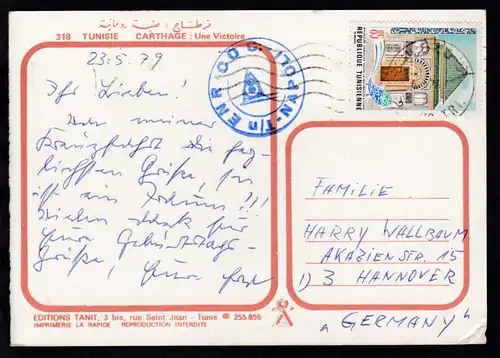 قرطاج : فنية رومانية
318 TUNISIE CARTHAGE : Une Victoire
23.5.79
Ihr Lieben!
Von meiner
Kreuzfahrt die herz-
lichsten Grüße, es
ist ein Traum !!!
Vielen Dank für
Eure Geburtstags-
Grüße, Eure
EDITIONS TANIT, 3 bis, rue Saint Jean - Tunis ® 255.856
IMPRIMERIE LA RAPIDE REPRODUCTION INTERDITE
T/n ENRICO C. NAPOLI
REPUBLIQUE TUNISIENNE
FAMILIE
HARRY WALLBAUM
AKAZIENSTR. 15
1) 3 HANNOVER
"GERMANY"